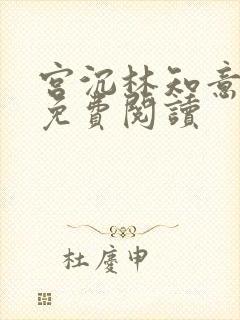 宫沉林知意
免費閱讀
杜慶申